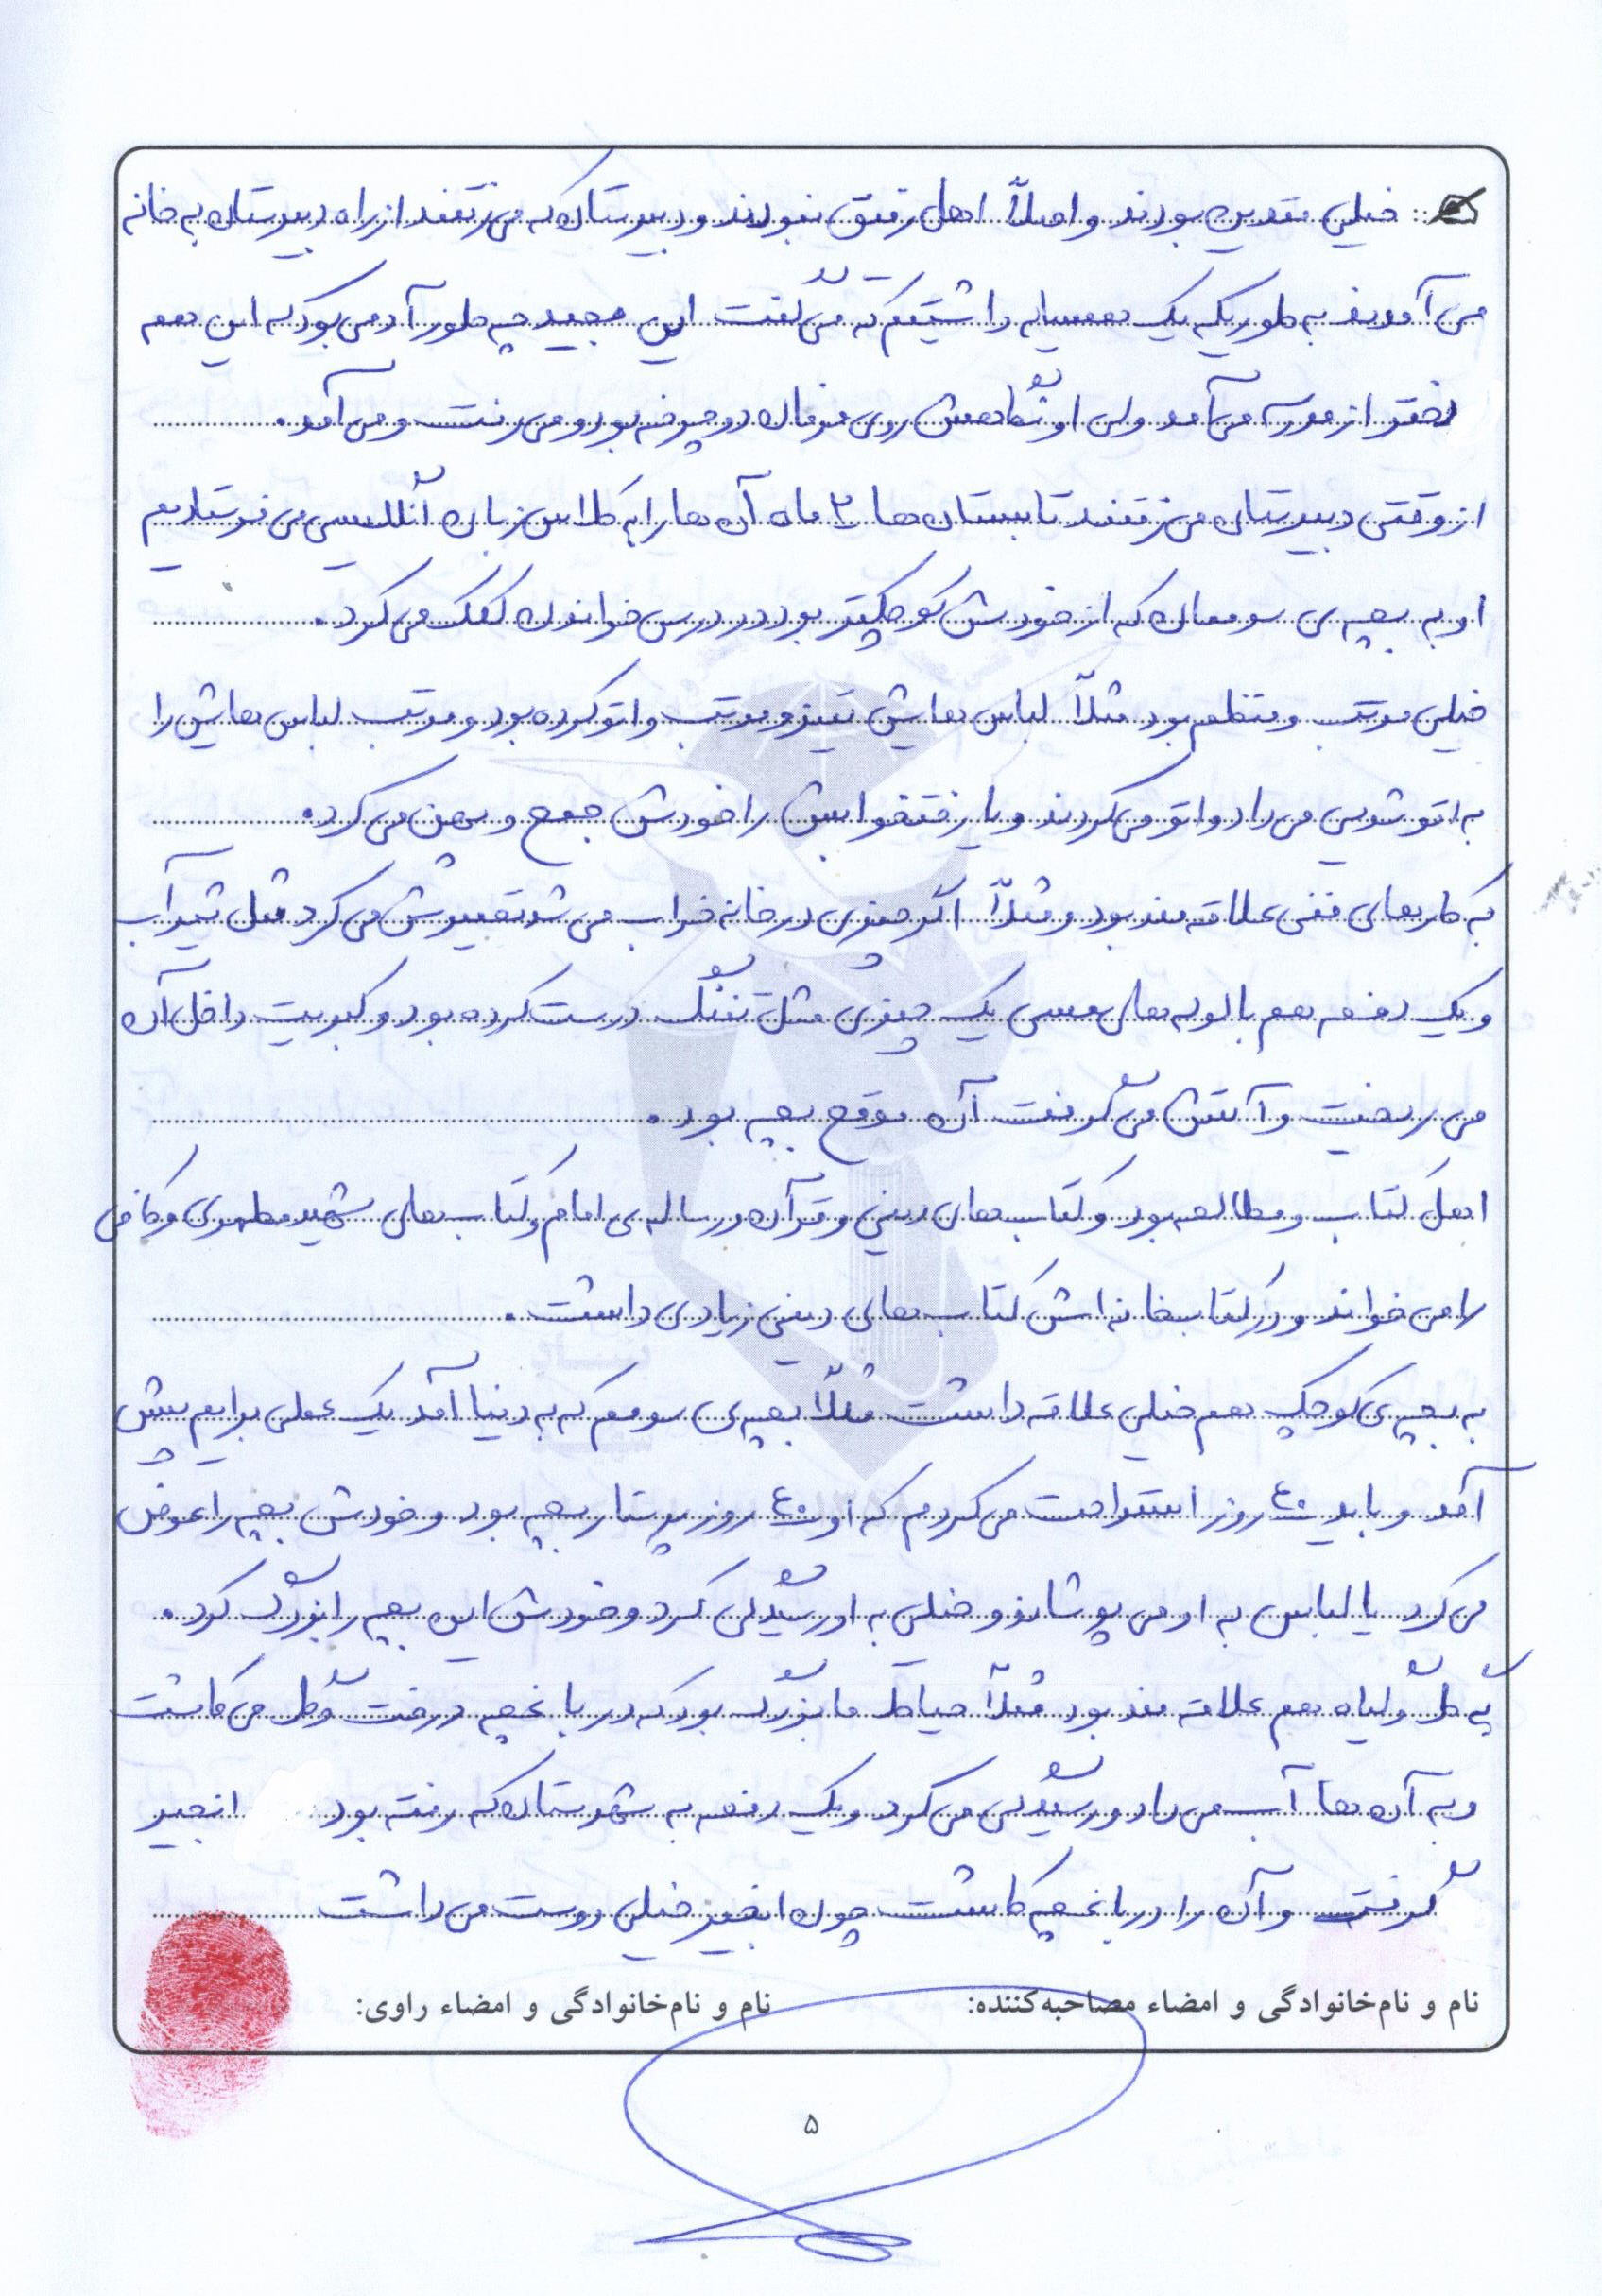 خیلی متدین بودند و اصلاً اهل رفیق نبودند و دبیرستان که می رفتند از راه دبیرستان به خانه
می آمدند به طوریکه یک همسایه داشتیم که می گفت این مجید چه طور آدمی بود که این همه
دختر از مدرسه می آمد ولی او نگاهش روی فرمان دوچرخه بود و می رفت و می آمد.
از وقتی دبیرستان می رفتند تابستان ها ۲ ماه آن ها را به کلاس زبان انگلیسی می فرستادیم
او به بچه ی سوممان که از خودش کوچکتر بود در درس خواندن کمک می کرد.
خیلی مرتب و منظم بود مثلاً لباس هایش تمیز و مرتب و اتو کرده بود و مرتب لباس هایش را
به اتوشویی می داد و اتو می کردند و یا رختخوابش را خودش جمع و پهن می کرد.
به کارهای فنی علاقه مند بود و مثلاً اگر چیزی در خانه خراب می شد تعمیرش می کرد مثل شیرآب
و یک دفعه هم با لوله های مسی یک چیزی مثل تفنگ درست کرده بود و کبریت داخل آن
می ریخت و آتش می گرفت آن موقع بچه بود.
اهل کتاب و مطالعه بود و کتاب های دینی و قرآن و رساله ی امام و کتاب های شهید مطهری و کافی
را می خواند و در کتابخانه اش کتاب های دینی زیادی داشت.
به بچه ی کوچک هم خیلی علاقه داشت مثلاً بچه ی سومم که به دنیا آمد یک عملی برایم پیش
آمد و باید ۴۰ روز استراحت می کردم که او ۴۰ روز پرستار بچه بود و خودش بچه را عوض
می کرد یا لباس به او می پوشاند و خیلی به او رسیدگی کرد و خودش این بچه را بزرگ کرد.
به گل و گیاه هم علاقه مند بود مثلاً حیاط ما بزرگ بود که در باغچه درخت و گل می کاشت
و به آن ها آب می داد و رسیدگی می کرد و یک دفعه به شهرستان که رفته بود انجیر
گرفت و آن را در باغچه کاشت چون انجیر خیلی دوست می داشت
نام و نام‌خانوادگی و امضاء مصاحبه‌کننده: نام و نام‌خانوادگی و امضاء راوی:
۵